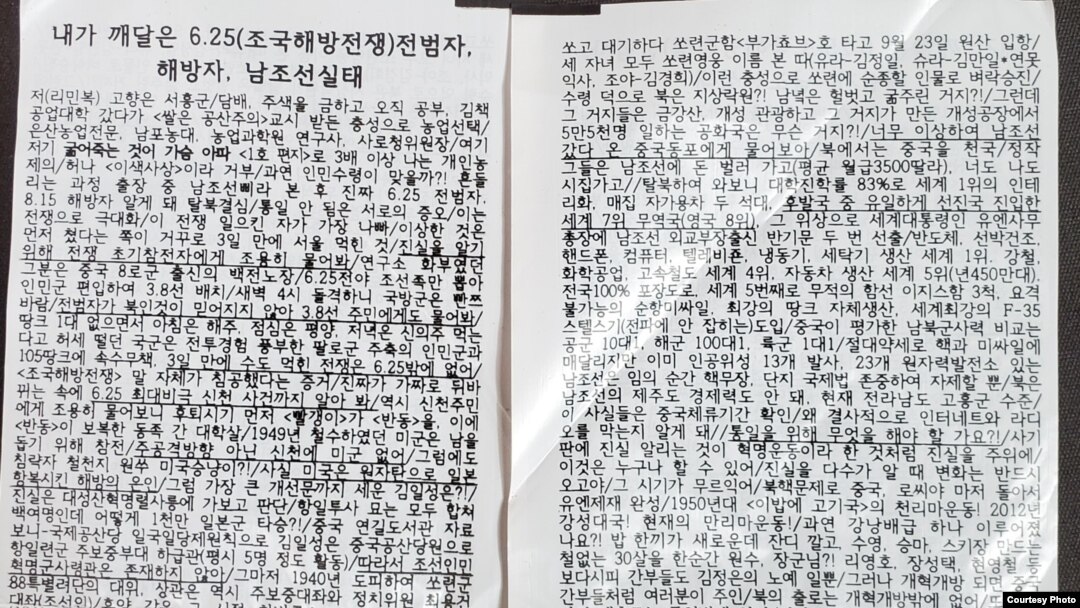 내가 깨달은 6.25(조국해방전쟁)전범자,
해방자, 남조선실태
저(리민복) 고향은 서흥군/담배, 주색을 금하고 오직 공부, 김책
공업대학 갔다가 <쌀은 공산주의>교시 받든 충성으로 농업선택/
은산농업전문, 남포농대, 농업과학원 연구사, 사로청위원장/여기
저기 굶어죽는 것이 가슴 아파 <1호 편지>로 3배 이상 나는 개인농
제의/허나 <이색사상>이라 거부/과연 인민수령이 맞을까?! 흔들
리는 과정 출장 중 남조선삐라 본 후 진짜 6.25 전범자,
8.15 해방자 알게 돼 탈북결심/통일 안 됨은 서로의 증오/이는
전쟁으로 극대화/이 전쟁 일으킨 자가 가장 나빠/이상한 것은
먼저 쳤다는 쪽이 거꾸로 3일 만에 서울 먹힌 것/진실을 알기
위해 전쟁 초기참전자에게 조용히 물어봐/연구소 화부였던
그분은 중국 8로군 출신의 백전노장/6.25전야 조선족만 뽑아
인민군 편입하여 3.8선 배치/새벽 4시 돌격하니 국방군은 빤쯔
바람/전범자가 북인것이 믿어지지 않아 3.8선 주민에게도 물어봐/
땅크 1대 없으면서 아침은 해주, 점심은 평양, 저녁은 신의주 먹는
다고 허세 떨던 국군은 전투경험 풍부한 팔로군 주축의 인민군과
105땅크에 속수무책, 3일 만에 수도 먹힌 전쟁은 6.25밖에 없어/
<조국해방전쟁> 말 자체가 침공했다는 증거/진짜가 가짜로 뒤바
뀌는 속에 6.25 최대비극 신천 사건까지 알아 봐/역시 신천주민
에게 조용히 물어보니 후퇴시기 먼저 <빨갱이>가 <반동>을, 이에
<반동>이 보복한 동족 간 대학살/1949년 철수하였던 미군은 남을
돕기 위해 참전/주공격방향 아닌 신천에 미군 없어/그럼에도
침략자 철천지 원쑤 미국승냥이?!/사실 미국은 원자탄으로 일본
항복시킨 해방의 은인/그럼 가장 큰 개선문까지 세운 김일성은?!/
진실은 대성산혁명렬사릉에 가보고 판단/항일투사 묘는 모두 합쳐
백여명인데 어떻게 1천만 일본군 타승?!/중국 연길도서관 자료
보니-국제공산당 일국일당제원칙으로 김일성은 중국공산당원으로
항일련군 주보중부대 하급관(평시 5명 정도 활동)/따라서 조선인민
혁명군사령관은 존재하지 않아/그마저 1940년 도피하여 쏘련군
88특별려단의 대위, 상관은 역시 주보중대좌와 정치위원 최용건
쏘고 대기하다 쏘련군함<부가쵸브>호 타고 9월 23일 원산 입항/
세 자녀 모두 쏘련영웅 이름 본 따(유라-김정일, 슈라-김만일*연못
익사, 조야-김경희)/이런 충성으로 쏘련에 순종할 인물로 벼락승진/
수령 덕으로 북은 지상락원?! 남녘은 헐벗고 굶주린 거지?!/그런데
그 거지들은 금강산, 개성 관광하고 그 거지가 만든 개성공장에서
5만5천명 일하는 공화국은 무슨 거지?!/너무 이상하여 남조선
갔다 온 중국동포에게 물어보아/북에서는 중국을 천국/정작
그들은 남조선에 돈 벌러 가고(평균 월급3500딸라), 너도 나도
시집가고//탈북하여 와보니 대학진학률 83%로 세계 1위의 인테
리화, 매집 자가용차 두 석대, 후발국 중 유일하게 선진국 진입한
세계 7위 무역국(영국 8위), 그 위상으로 세계대통령인 유엔사무
총장에 남조선 외교부장출신 반기문 두 번 선출/반도체, 선박건조,
핸드폰, 컴퓨터, 텔레비죤, 냉동기, 세탁기 생산 세계 1위, 강철,
화학공업, 고속철도 세계 4위, 자동차 생산 세계 5위(년450만대),
전국100% 포장도로, 세계 5번째로 무적의 함선 이지스함 3척, 요격
불가능의 순항미싸일, 최강의 땅크 자체생산, 세계최강의 F-35
스텔스기(전파에 안 잡히는)도입/중국이 평가한 남북군사력 비교는
공군 10대1, 해군 100대1, 륙군 1대1/절대약세로 핵과 미싸일에
매달리지만 이미 인공위성 13개 발사, 23개 원자력발전소 있는
남조선은 임의 순간 핵무장, 단지 국제법 존중하여 자제할 뿐/북은
남조선의 제주도 경제력도 안 돼, 현재 전라남도 고흥군 수준/
이 사실들은 중국체류기간 확인/왜 결사적으로 인터네트와 라디
오를 막는지 알게 돼//통일을 위해 무엇을 해야 할 가요?!/사기
판에 진실 알리는 것이 혁명운동이라 한 것처럼 진실을 주위에/
이것은 누구나 할 수 있어/진실을 다수가 알 때 변화는 반드시
오고야/그 시기가 무르익어/북핵문제로 중국, 로씨야 마저 돌아서
유엔제재 완성/1950년대 <이밥에 고기국>의 천리마운동! 2012년
강성대국! 현재의 만리마운동!/과연 강냉배급 하나 이루어졌
나요?! 밥 한끼가 새로운데 잔디 깔고 수영, 승마, 스키장 만드는
철없는 30살을 한순간 원수, 장군님?! 리영호, 장성택, 현영철 등
보다시피 간부들도 김정은의 노예 일뿐/그러나 개혁개방 되면 중국
간부들처럼 여러분이 주인/북의 출로는 개혁개방밖에 없어/
Courtesy Photo